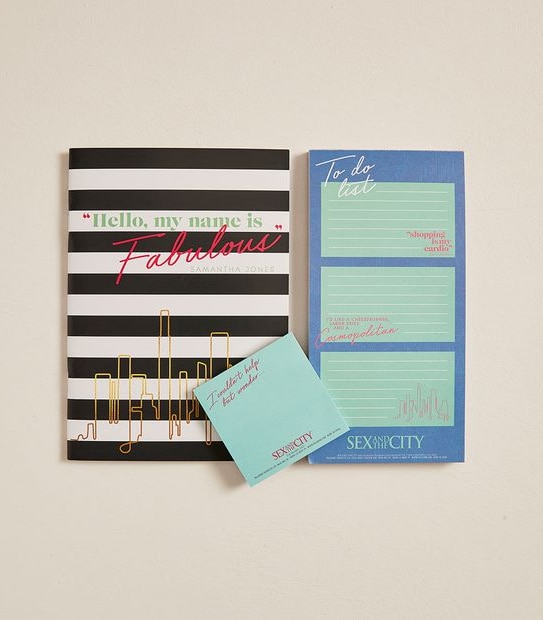 "Hello, my name is
Fabulous"
SAMANTHA JONES
To do
list
"shopping
is my
cardio"
I'D LIKE A CHEESEBURGER,
LARGE FRIES
AND A
Cosmopolitan
SEX AND THE CITY
I couldn't help
but wonder
SEX AND THE CITY